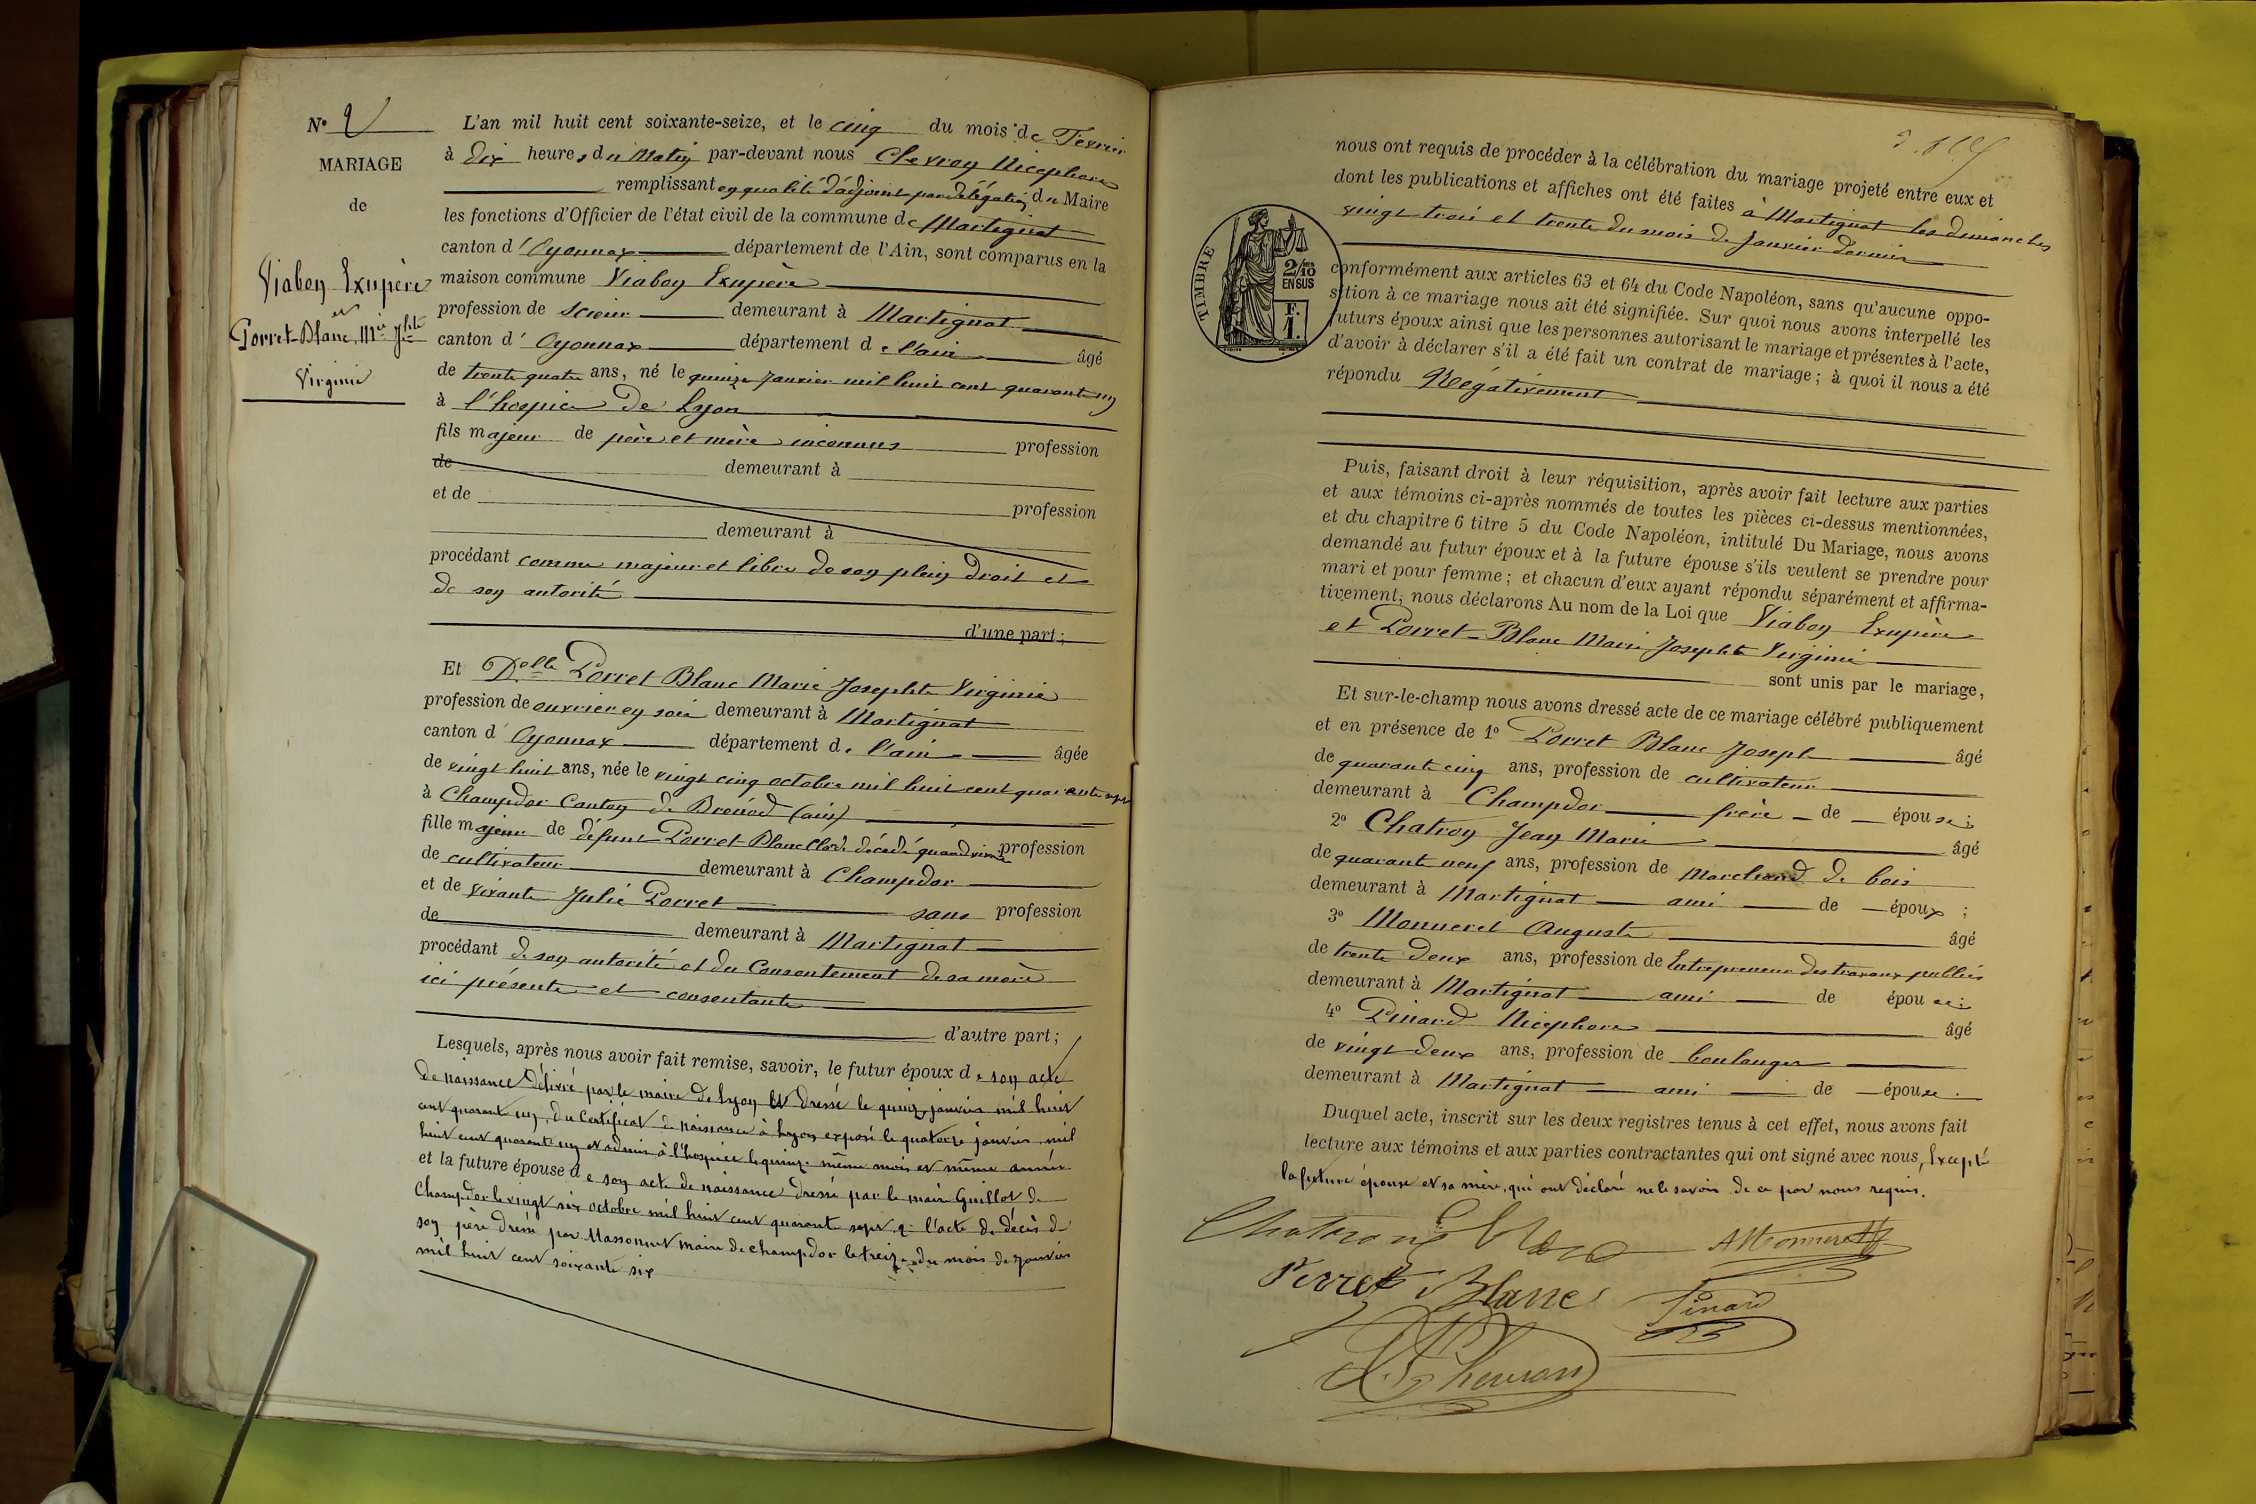 N° 2
MARIAGE
de
Viabon Exupère
et
Porret-Blanc, Mie Jhte
Virginie
L'an mil huit cent soixante-seize, et le cinq du mois de Fevrier
à dix heures du Matin par-devant nous Chevron Nicephore
remplissant en qualité d'adjoint par délégation du Maire
les fonctions d'Officier de l'état civil de la commune de Martignat
canton d'Oyonnax département de l'Ain, sont comparus en la
maison commune Viabon Exupère
profession de scieur demeurant à Martignat
canton d'Oyonnax département de l'ain âgé
de trente quatre ans, né le quinze Janvier mil huit cent quarante un
à l'hospice de Lyon
fils majeur de père et mère inconnus profession
de demeurant à
et de profession
demeurant à
procédant comme majeur et libre de son plein droit et
de son autorité
d'une part;
Et Delle Porret Blanc Marie Josephte Virginie
profession de ouvrier en soie demeurant à Martignat
canton d'Oyonnax département de l'ain âgée
de vingt huit ans, née le vingt cinq octobre mil huit cent quarante sept
à Champdor Canton de Brénod (ain)
fille majeur de défunt Porret-Blanc Claude décédé quand vivait profession
de cultivateur demeurant à Champdor
et de vivante Julie Porret sans profession
de demeurant à Martignat
procédant de son autorité et du Consentement de sa mère
ici présente et consentante
d'autre part;
Lesquels, après nous avoir fait remise, savoir, le futur époux de son acte
de naissance délivré par le maire de Lyon et dressé le quinze janvier mil huit
cent quarante un, du Certificat de naissance à Lyon exposé le quatorze janvier mil
huit cent quarante un et admis à l'hospice le quinze même mois et même année
et la future épouse de son acte de naissance dressé par le maire Guillot de
Champdor le vingt six octobre mil huit cent quarante sept, l'acte de décès de
son père dressé par Massonnet maire de champdor le treize du mois de janvier
mil huit cent soixante six
nous ont requis de procéder à la célébration du mariage projeté entre eux et
dont les publications et affiches ont été faites à Martignat les dimanches
vingt trois et trente du mois de Janvier dernier
TIMBRE
2/10
EN SUS
F.
1.
conformément aux articles 63 et 64 du Code Napoléon, sans qu'aucune oppo-
sition à ce mariage nous ait été signifiée. Sur quoi nous avons interpellé les
futurs époux ainsi que les personnes autorisant le mariage et présentes à l'acte,
d'avoir à déclarer s'il a été fait un contrat de mariage; à quoi il nous a été
répondu Négativement
Puis, faisant droit à leur réquisition, après avoir fait lecture aux parties
et aux témoins ci-après nommés de toutes les pièces ci-dessus mentionnées,
et du chapitre 6 titre 5 du Code Napoléon, intitulé Du Mariage, nous avons
demandé au futur époux et à la future épouse s'ils veulent se prendre pour
mari et pour femme; et chacun d'eux ayant répondu séparément et affirma-
tivement, nous déclarons Au nom de la Loi que Viabon Exupère
et Porret-Blanc Marie Josephte Virginie
sont unis par le mariage,
Et sur-le-champ nous avons dressé acte de ce mariage célébré publiquement
et en présence de 1° Porret Blanc Joseph âgé
de quarante cinq ans, profession de cultivateur
demeurant à Champdor frère de épouse;
2° Chatron Jean Marie âgé
de quarante neuf ans, profession de Marchand de bois
demeurant à Martignat ami de époux;
3° Monneret Auguste âgé
de trente deux ans, profession de Entrepreneur des travaux publics
demeurant à Martignat ami de épouse;
4° Pinard Nicephore âgé
de vingt deux ans, profession de boulanger
demeurant à Martignat ami de épouse.
Duquel acte, inscrit sur les deux registres tenus à cet effet, nous avons fait
lecture aux témoins et aux parties contractantes qui ont signé avec nous, Excepté
la future épouse et sa mère, qui ont déclaré ne le savoir de ce par nous requis.
Chatron
A Monneret
Perret Blanc
Pinard
Chevron